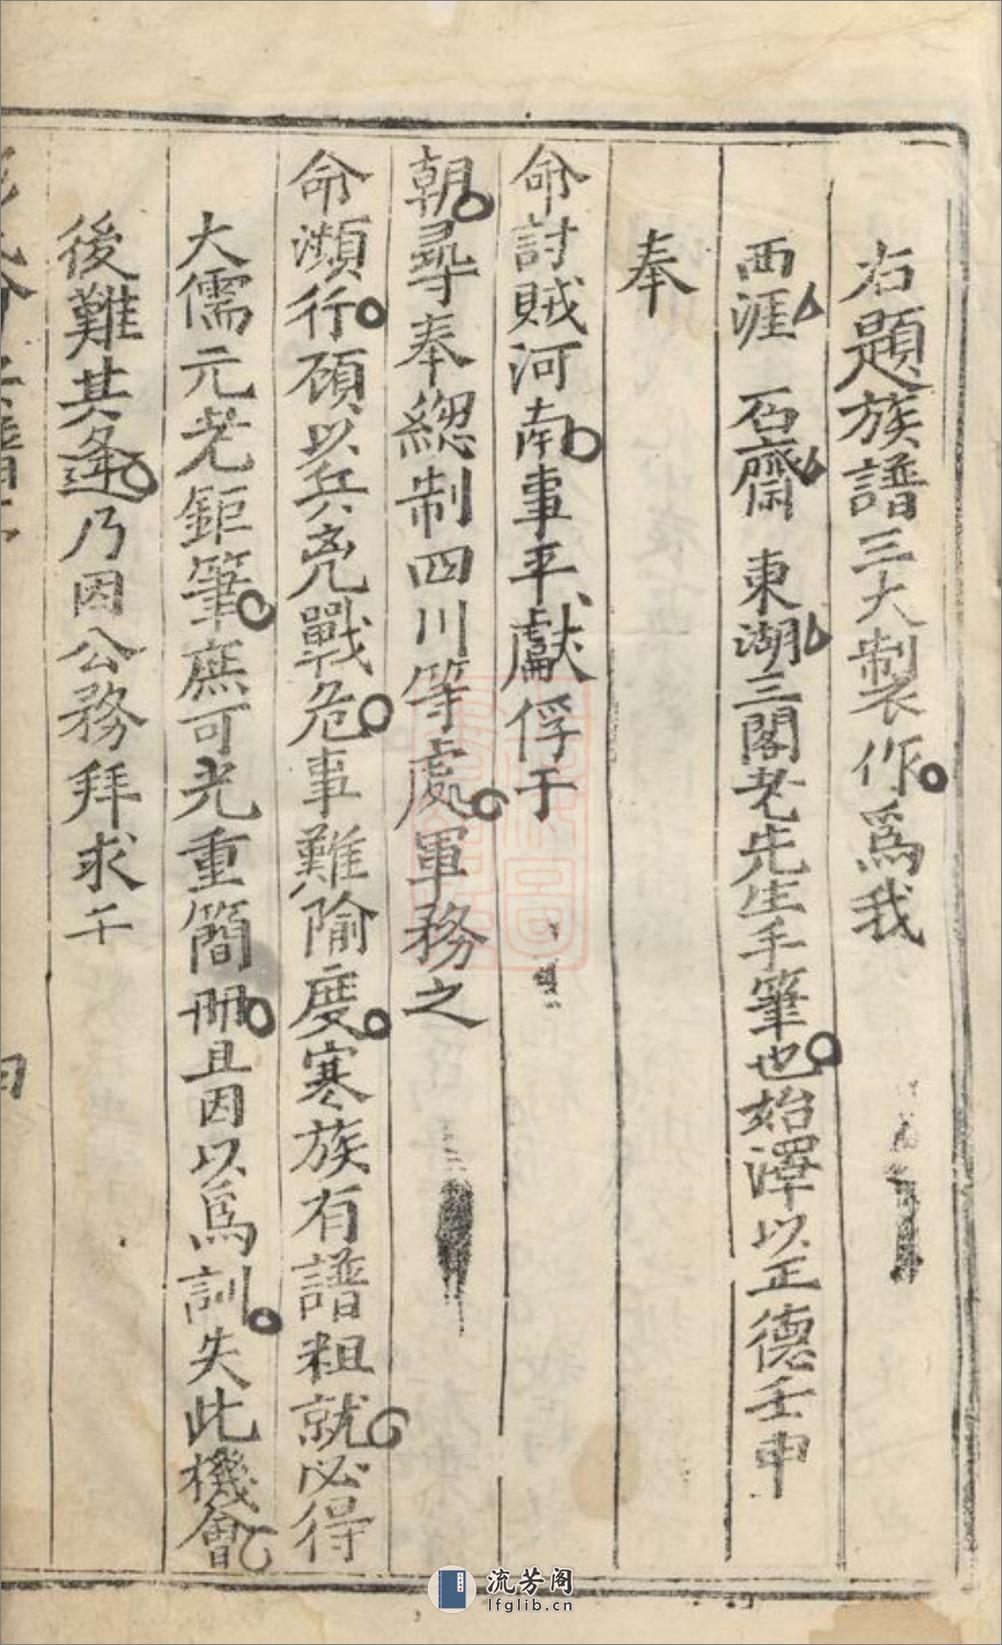 右題族譜三大製作爲我
西涯 石齋 東湖三閣老先生手筆也始澤以正德壬申
奉
命討賊河南事平獻俘于
朝尋奉總制四川等處軍務之
命瀕行顧以兵兇戰危事難隃度寒族有譜粗就必得
大儒元老鉅筆庶可光重簡册且因以爲訓失此機會
後難其逢乃因公務拜求于
流芳阁
lfglib.cn